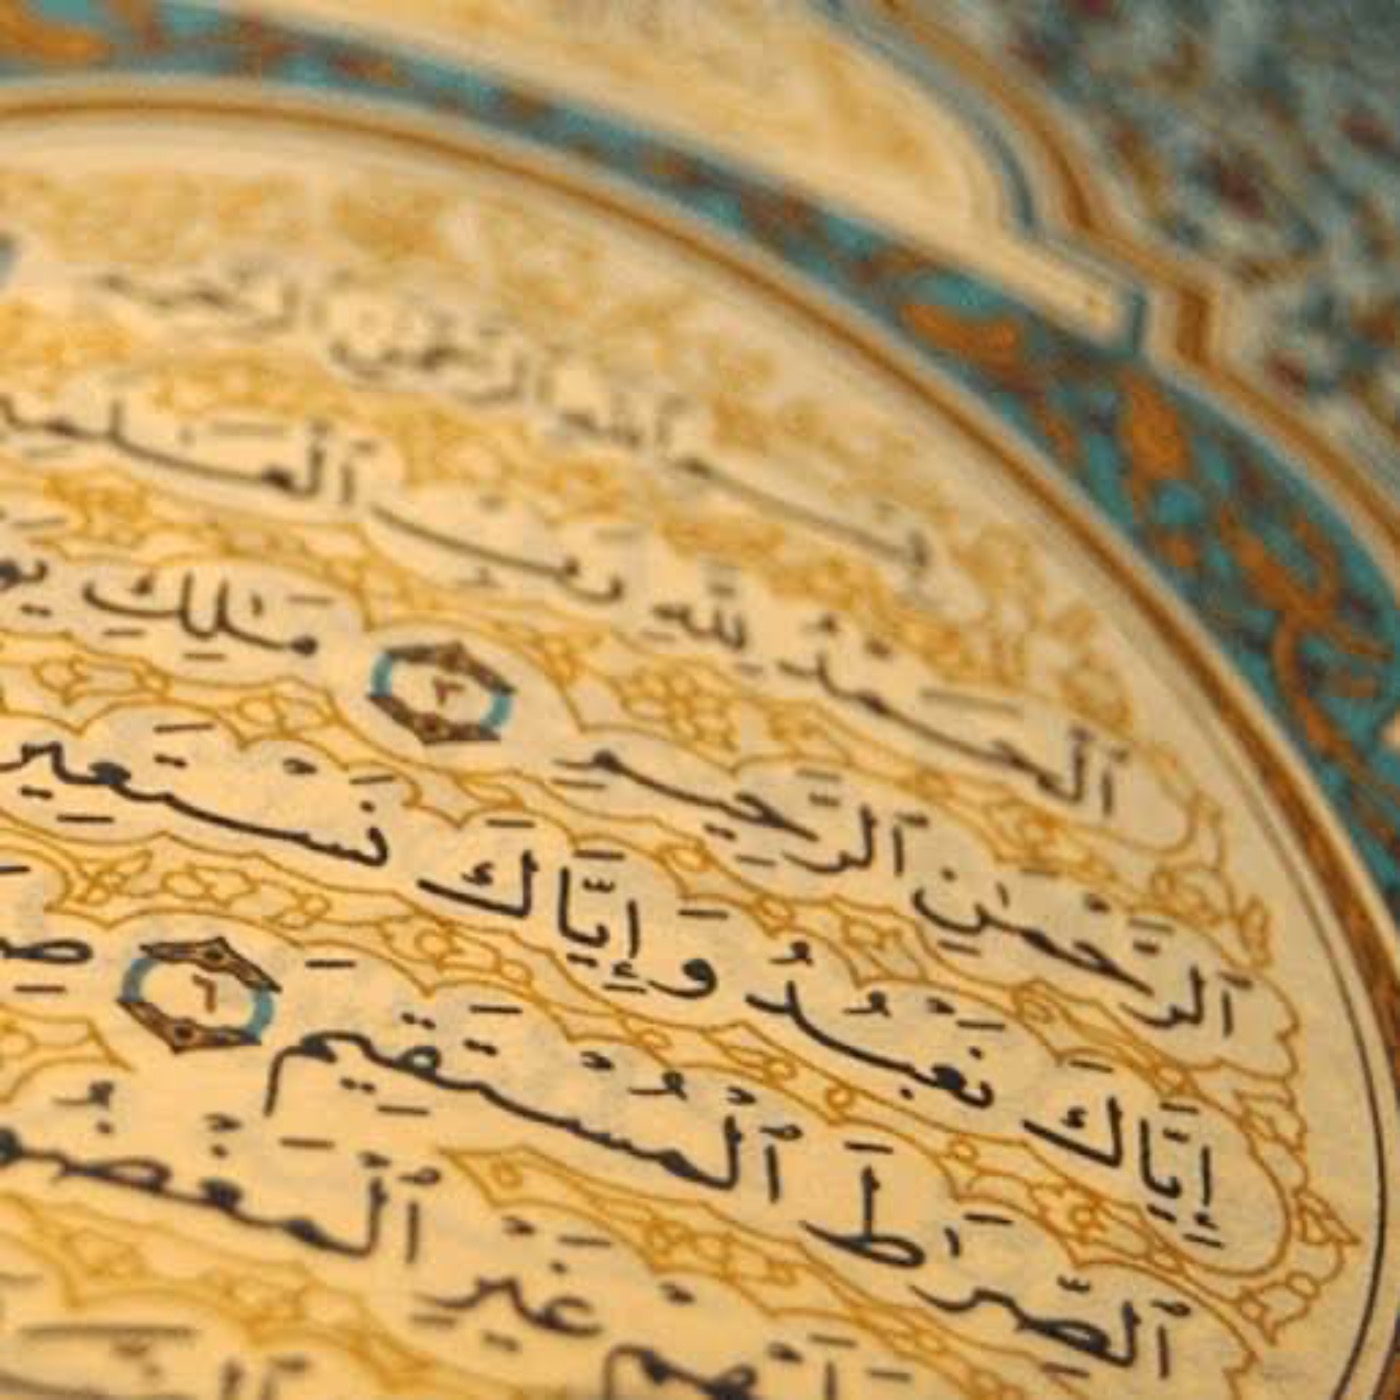 بِسْمِ ٱللَّهِ ٱلرَّحْمَٰنِ ٱلرَّحِيمِ
ٱلْحَمْدُ لِلَّهِ رَبِّ ٱلْعَٰلَمِي
ٱلرَّحْمَٰنِ ٱلرَّحِيمِ ٣ مَٰلِكِ يَو
إِيَّاكَ نَعْبُدُ وَإِيَّاكَ نَسْتَعِين
ٱلصِّرَٰطَ ٱلْمُسْتَقِيمَ ٦ صِ
غَيْرِ ٱلْمَغْضُو